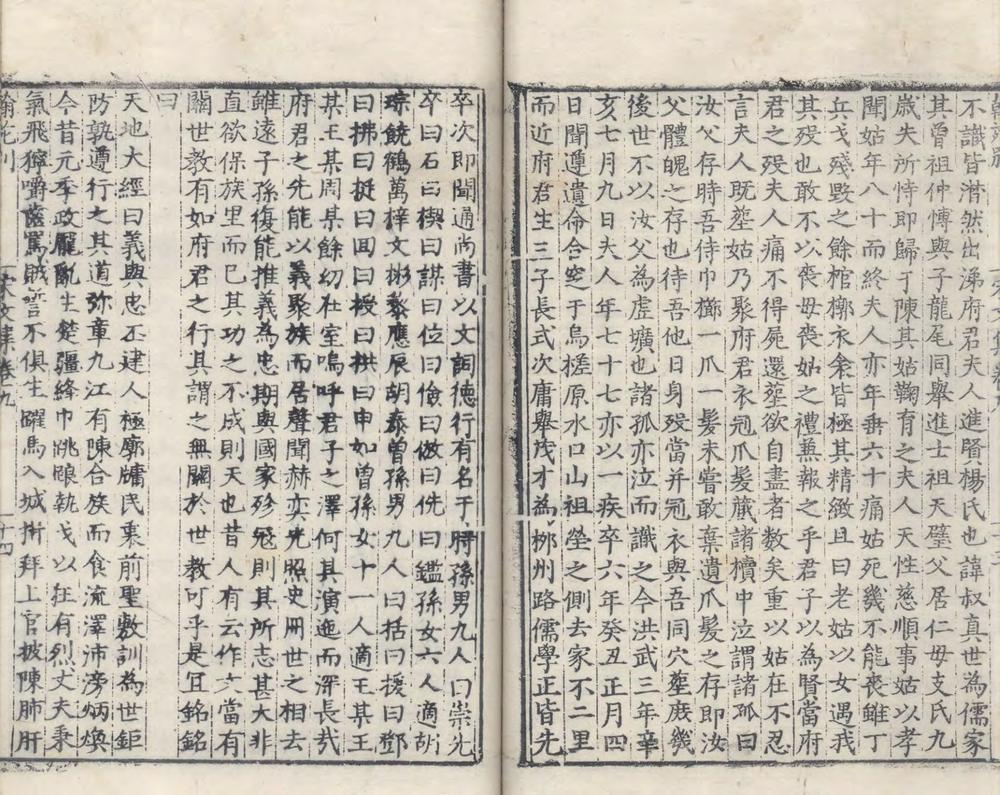 不識皆潸然出涕府君夫人進賢楊氏也諱叔真世為儒家
其曾祖仲慱與子龍尾同舉進士祖天璧父居仁母支氏九
歲失所恃即歸于陳其姑鞠育之夫人天性慈順事姑以孝
聞姑年八十而終夫人亦年垂六十痛姑死幾不能喪雖丁
兵戈殘毀之餘棺槨衣衾皆極其精緻且曰老姑以女遇我
其殁也敢不以喪母喪姑之禮無報之乎君子以為賢當府
君之殁夫人痛不得屍還塟欲自盡者数矣重以姑在不忍
言夫人既塟姑乃聚府君衣冠爪髮蕆諸櫝中泣謂諸孤曰
汝父存時吾侍巾櫛一爪一髮未嘗敢棄遺爪髮之存即汝
父體魄之存也待吾他日身殁當并冠衣與吾同穴塟庻幾
後世不以汝父為虚壙也諸孤亦泣而識之今洪武三年辛
亥七月九日夫人年七十七亦以一疾卒六年癸丑正月四
日聞遵遺命合窆于烏槎原水口山祖塋之側去家不二里
而近府君生三子長式次庸舉茂才為郴州路儒學正皆先
卒次即聞通尚書以文詞德行有名于時孫男九人曰崇先
卒曰石曰楔曰謀曰位曰儉曰倣曰侁曰鑑孫女六人適胡
琮饒鶴萬梓文彬黎應辰胡泰曾孫男九人曰括曰援曰鄧
曰拂曰挺曰囬曰授曰拱曰申如曾孫女十一人適王其王
某王某周某餘幼在室嗚呼君子之澤何其演迤而深長㢤
府君之先能以義聚族而居聲聞赫奕光照史冊世之相去
雖遠子孫復能推義為忠期與國家殄冦則其所志甚大非
直欲保族里而已其功之不成則天也昔人有云作文當有
關世教有如府君之行其謂之無關於世教可乎是冝銘銘
曰
天地大經曰義與忠丕建人極廓牗民衷前聖敷訓為世鉅
防孰遵行之其道弥章九江有陳合族而食流澤沛滂炳煥
今昔元季政厖亂生楚疆絳巾跳踉執戈以狂有烈丈夫秉
氣飛獰嚼齒罵賊誓不俱生躍馬入城拜拜上官披陳肺肝